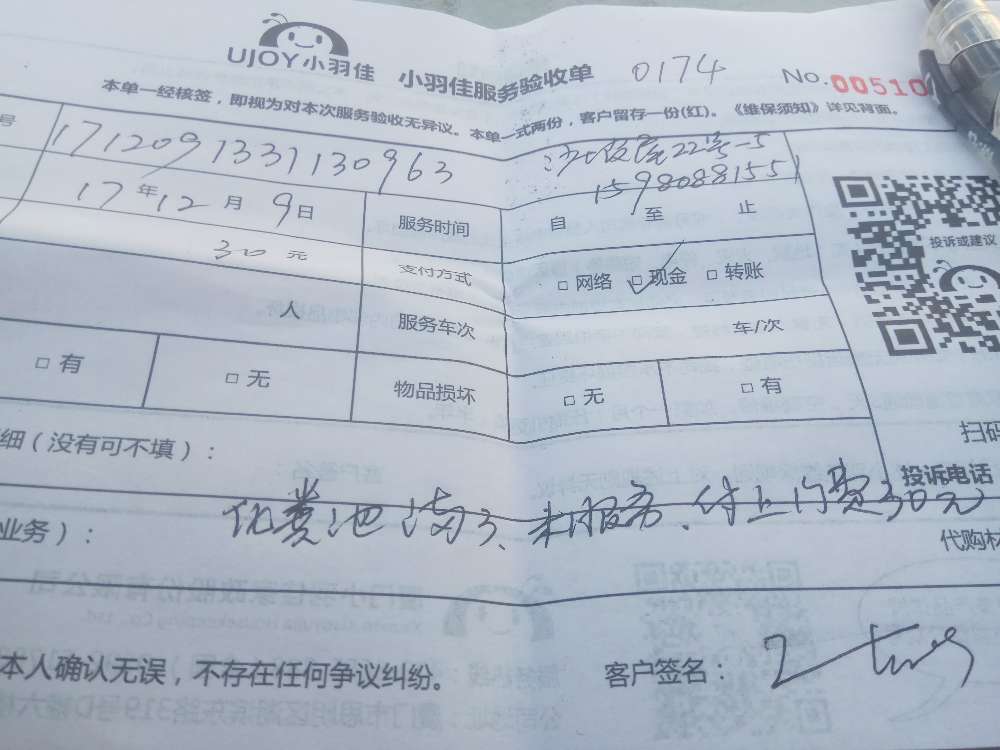 UJOY小羽佳 小羽佳服务验收单 0174 No.00510
本单一经核签，即视为对本次服务验收无异议。本单一式两份，客户留存一份(红)。《维保须知》详见背面。
号 171209133130963 22号-5
15980881551
17年12月9日 服务时间 自 至 止
30元 支付方式 □网络 □现金 □转账
投诉或建议
人 服务车次 车/次
□有 □无 物品损坏 □无 □有
细（没有可不填）：
扫码
投诉电话
业务）： 化粪池满了、未服务、付上门费30元
代购材
本人确认无误，不存在任何争议纠纷。 客户签名：